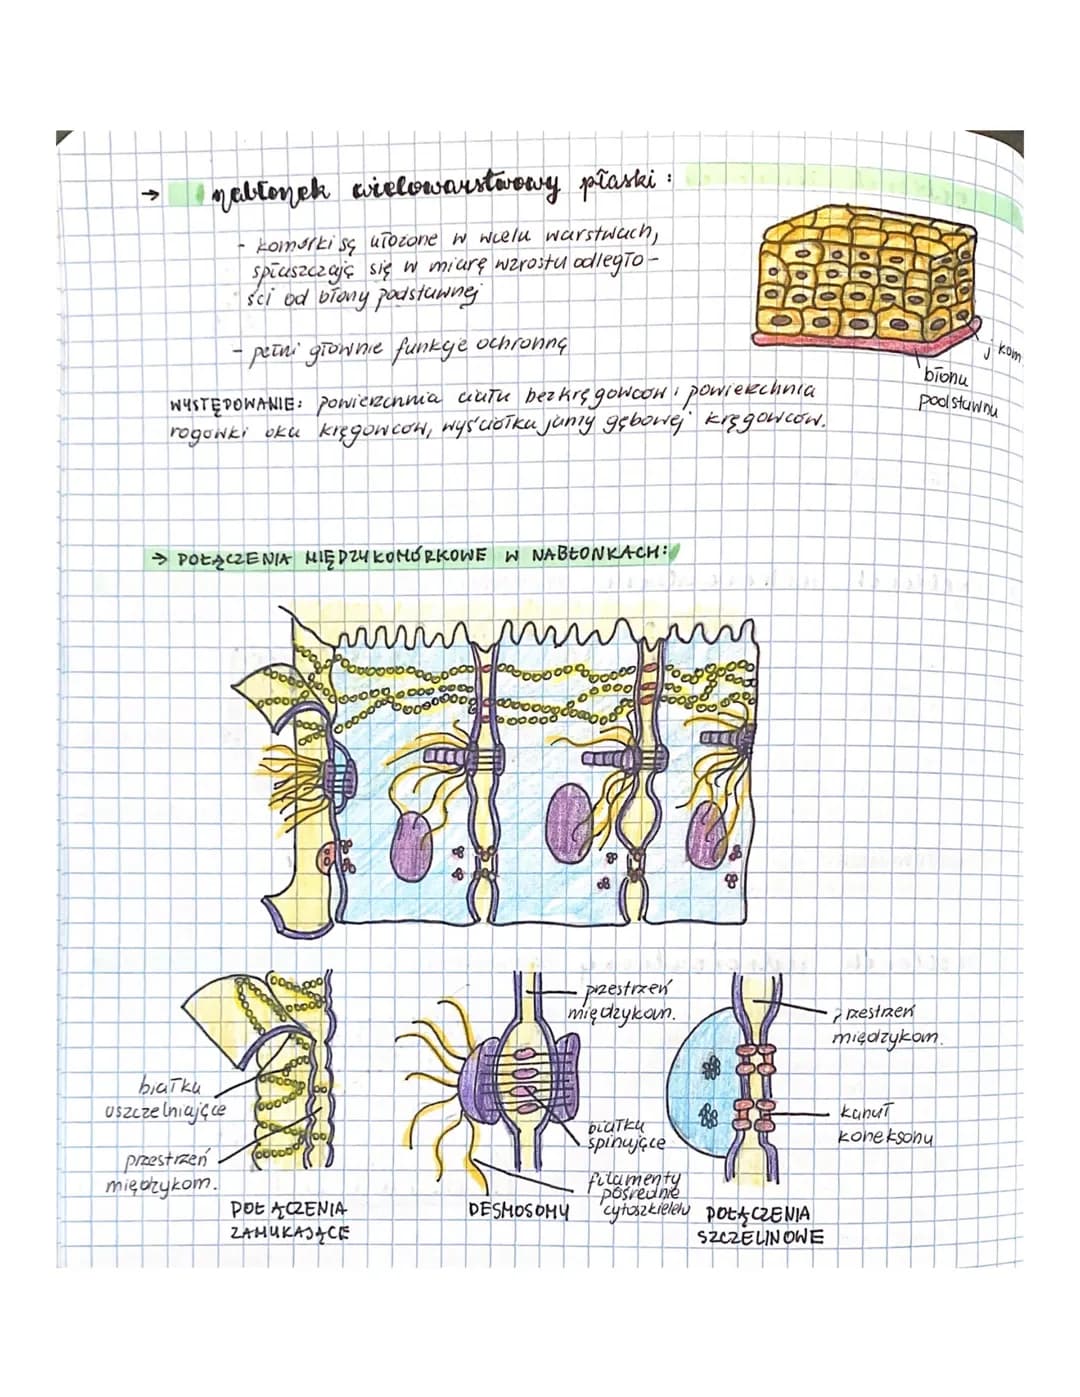 → nabłonek wielowarstwowy płaski :
- komórki są ułożone w wielu warstwach,
spłaszczają się w miarę wzrostu odległo-
ści od błony podstawnej
- pełni głównie funkcję ochronną
j kom
błona
podstawna
WYSTĘPOWANIE: powierzchnia ciała bezkręgowców i powierzchnia
rogówki oka kręgowców, wyściółka jamy gębowej kręgowców.
→ POŁĄCZENIA MIĘDZYKOMÓRKOWE W NABŁONKACH:
białka
uszczelniające
przestrzeń
międzykom.
POŁĄCZENIA
ZAMYKAJĄCE
przestrzeń
międzykom.
białka
spinające
filamenty
pośrednie
cytoszkieletu
DESMOSOMY
przestrzeń
międzykom.
kanał
koneksonu
POŁĄCZENIA
SZCZELINOWE